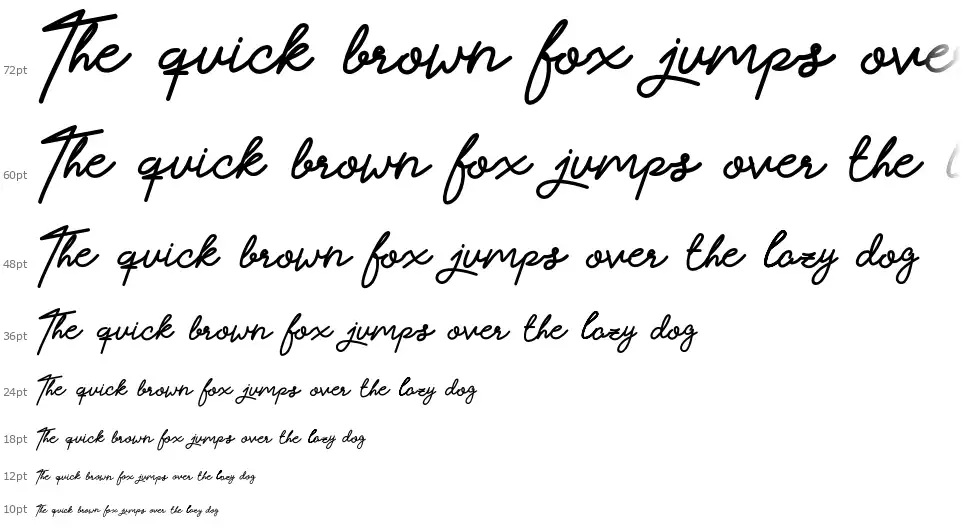 72pt The quick brown fox jumps over
60pt The quick brown fox jumps over the
48pt The quick brown fox jumps over the lazy dog
36pt The quick brown fox jumps over the lazy dog
24pt The quick brown fox jumps over the lazy dog
18pt The quick brown fox jumps over the lazy dog
12pt The quick brown fox jumps over the lazy dog
10pt The quick brown fox jumps over the lazy dog